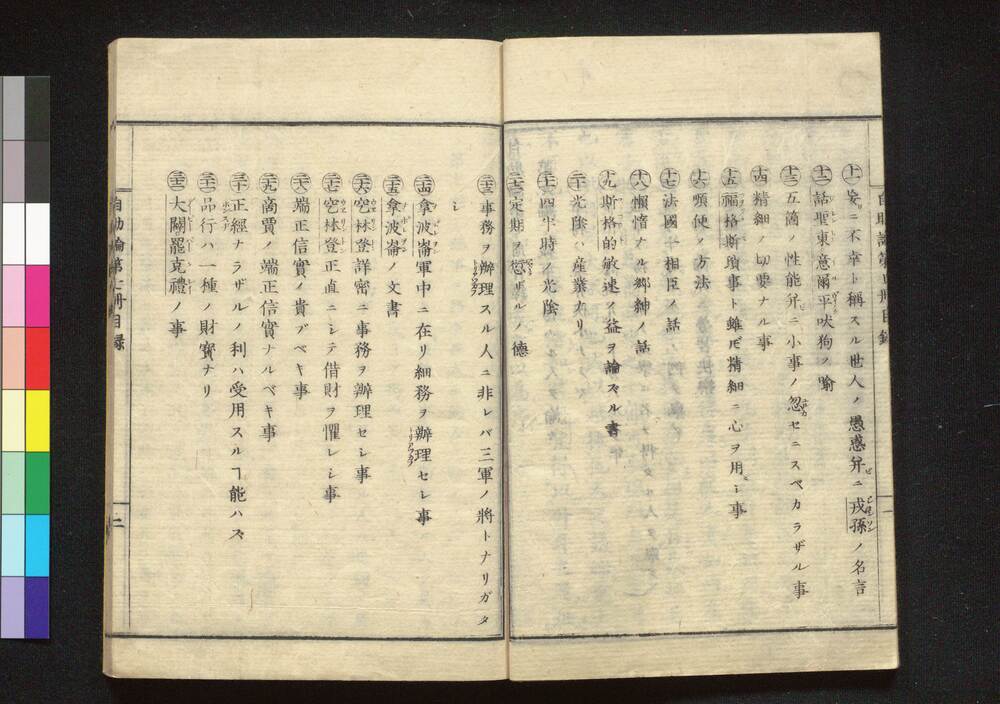 十一 妄ニ不幸ト稱スル世人ノ愚惑并ニ戎孫ノ名言
十二 話聖東意爾平吠狗ノ喩
十三 五箇ノ性能并ニ小事ノ忽セニスベカラザル事
十四 精細ノ切要ナル事
十五 福格斯瑣事ト雖𪜈精細ニ心ヲ用ヒシ事
十六 順便ノ方法
十七 法國ノ相臣ノ話
十八 懶惰ナル郷紳ノ話
十九 斯格的敏速ノ益ヲ論ズル書
二十 光陰ハ産業ナリ
二十一 四半時ノ光陰
二十二 定期ヲ愆ザルノ德
自助論第七冊目録
二十三 事務ヲ辦理スル人ニ非レバ三軍ノ將トナリガタ
シ
二十四 拿波崙軍中ニ在リ細務ヲ辦理セシ事
二十五 拿波崙ノ文書
二十六 空林登詳密ニ事務ヲ辦理セシ事
二十七 空林登正直ニシテ借財ヲ懼レシ事
二十八 端正信實ノ貴ブベキ事
二十九 商賈ノ端正信實ナルベキ事
三十 正經ナラザルノ利ハ受用スルヿ能ハズ
三十一 品行ハ一種ノ財寶ナリ
三十二 大關罷克禮ノ事
自助論第七冊目録
二